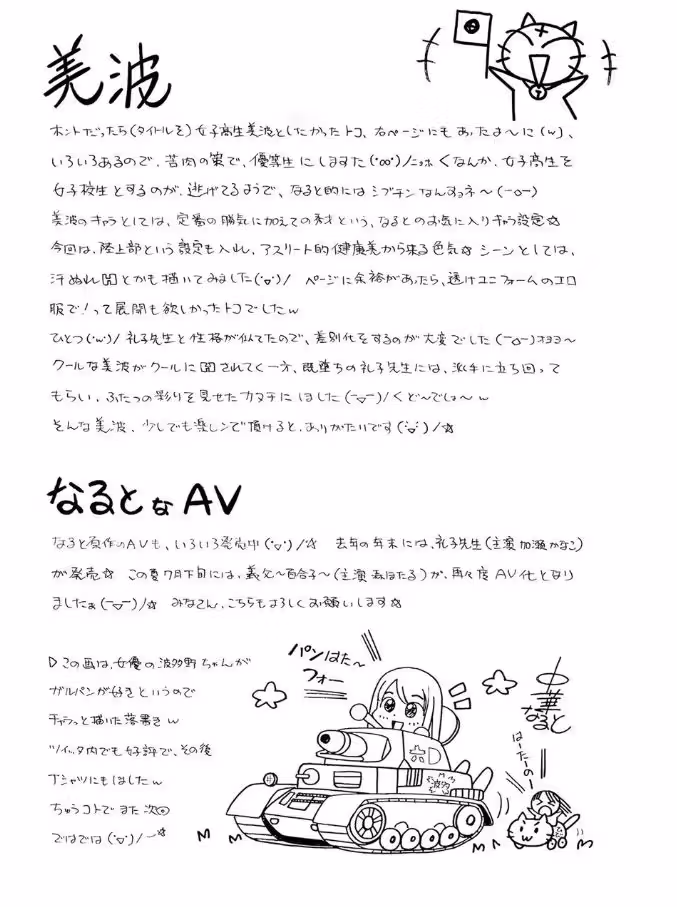 美波
ホントだったら(タイトルを)女子高生美波としたかったトコ、右ページにもあったよーに(w)、
いろいろあるので、苦肉の策で、優等生にしますた(°∞°)/ニョホ くなんか、女子高生を
女子校生とするのが、逃げてるようで、なると的にはシブチンなんすヨネ〜(ー○ー)
美波のキャラとしては、定番の勝気に加えての秀才という、なるとのお気に入りキャラ設定☆
今回は、陸上部という設定も入れ、アスリート的健康美から来る色気☆シーンとしては、
汗ぬれ凶とかも描いてみました(°▽°)/ ページに余裕があったら、透けユニフォームのエロ
服で!って展開も欲しかったトコでしたw
ひとつ(°w°)/ 礼子先生と性格が似てたので、差別化をするのが大変でした(ー△ー)オヨヨ〜
クールな美波がクールに凶されてく一方、既堕ちの礼子先生には、派手に立ち回って
もらい、ふたつの彩りを見せたカタチにしました(ー▽ー)/くど〜でしょ〜w
そんな美波、少しでも楽しンで頂けると、ありがたいです(°▽°)/☆
なるとなAV
なると原作のAVも、いろいろ発売中(°▽°)/☆ 去年の年末には、礼子先生(主演 加瀬かなこ)
が発売☆ この夏7月下旬には、義父〜百合子〜(主演 森ほたる)が、再々度AV化となり
ましたぁ(ー▽ー)/☆ みなさん、こちらもよろしくお願いします☆
▷この画は、女優の波多野ちゃんが
ガルパンが好きというので
チャラっと描いた落書きw
ツイッタ内でも好評で、その後
Tシャツにもしましたw
ちゅうコトでまた次回
ではでは(°▽°)/ー☆
パンはた〜
フォー
中華
なると
はーたーのー